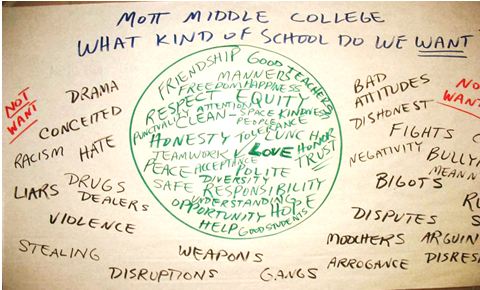 MOTT MIDDLE COLLEGE
WHAT KIND OF SCHOOL DO WE WANT
NOT WANT
DRAMA
CONCEITED
RACISM HATE
LIARS DRUGS
DEALERS
VIOLENCE
STEALING
DISRUPTIONS
WEAPONS
GANGS
FRIENDSHIP GOOD TEACHERS
MANNERS
FREEDOM HAPPINESS
RESPECT EQUITY
PUNCTUALITY ATTENTION
CLEAN-SPACE KINDNESS
PEOPLE
HONESTY TOLERANCE LUNCH HR
TEAMWORK LOVE HONOR
PEACE ACCEPTANCE TRUST
POLITE
DIVERSITY
SAFE RESPONSIBILITY
UNDERSTANDING
OPPORTUNITY HOPE
HELP GOOD STUDENTS
BAD
ATTITUDES
NO
WAN
DISHONEST
FIGHTS
NEGATIVITY BULLY
MEANN
BIGOTS
DISPUTES
MOOCHERS ARGUIN
ARROGANCE DISRES